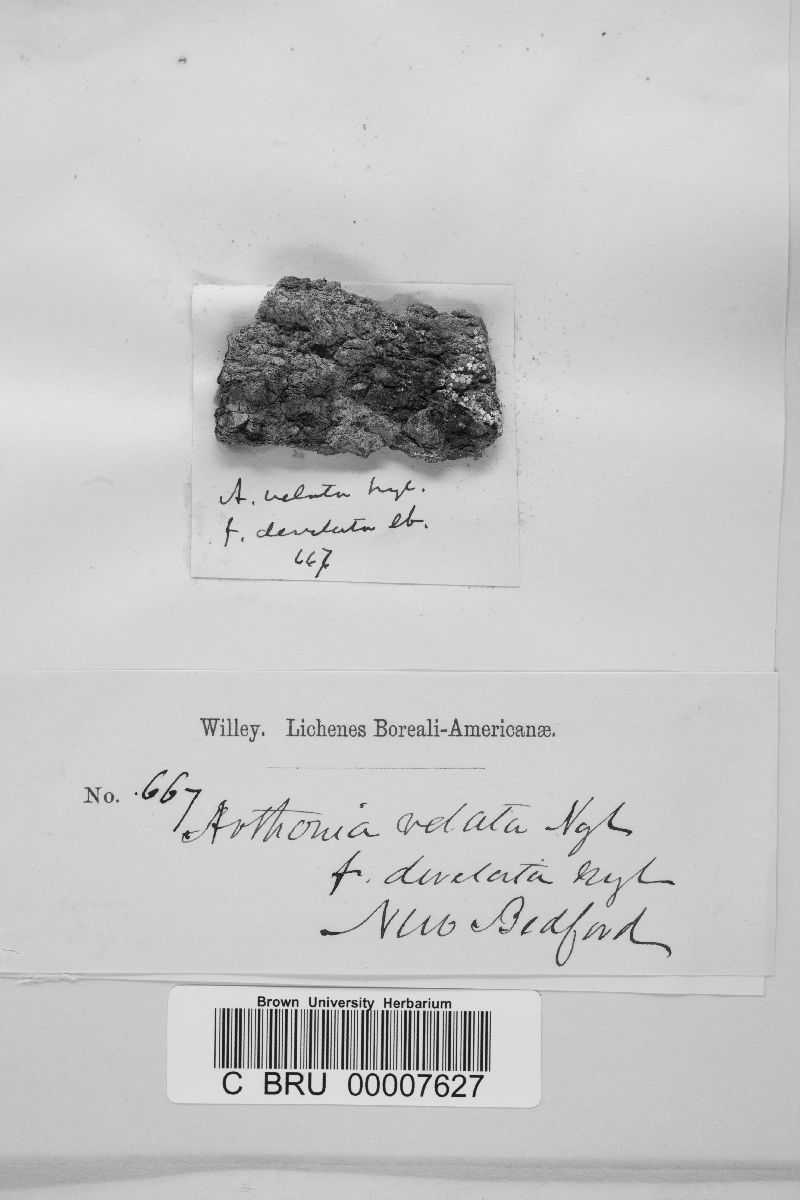 A. velata Nyl.
f. develata eb.
667
Willey. Lichenes Boreali-Americanæ.
No. 667
Arthonia velata Nyl
f. develata Nyl
New Bedford
Brown University Herbarium
C BRU 00007627